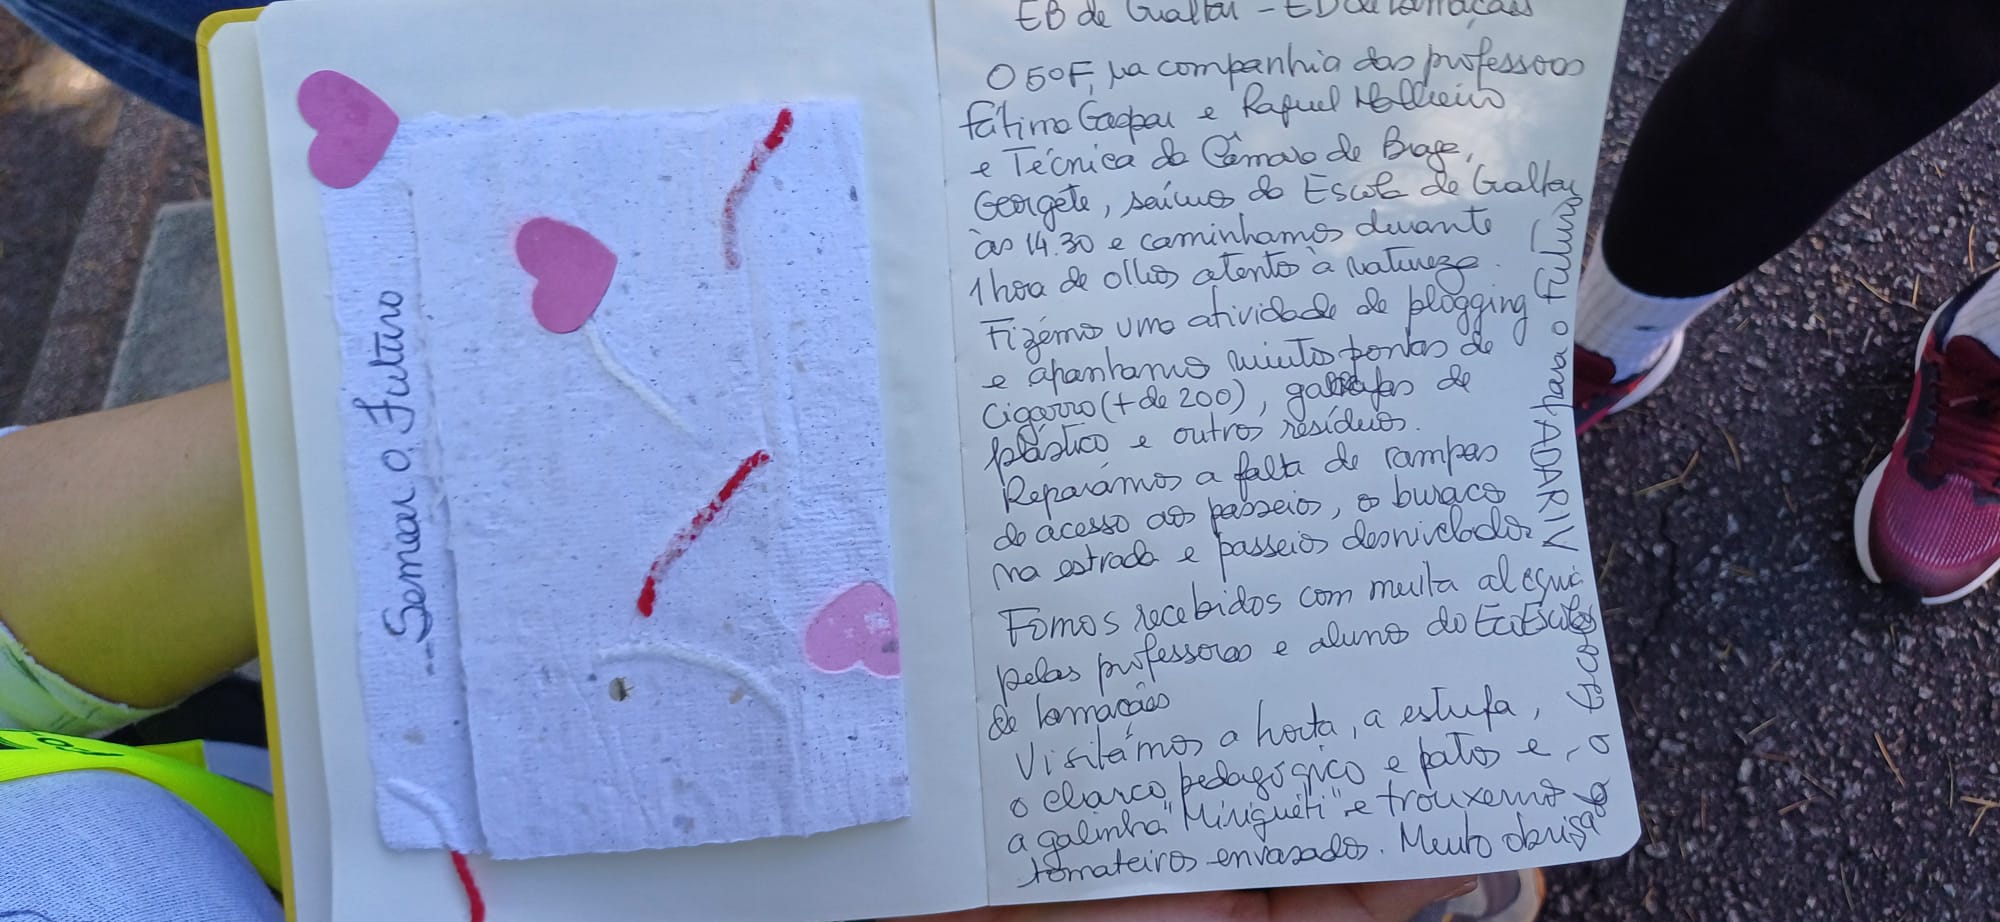 Semear o Futuro
EB de Gualtar - EB de Lamaçães
O 5ºF, na companhia das professoras
Fátima Gaspar e Raquel Malheiro
e Técnica da Câmara de Braga,
Georgete, saímos da Escola de Gualtar
às 14.30 e caminhamos durante
1 hora de olhos atentos à natureza.
Fizémos uma atividade de plogging
e apanhamos muitas pontas de
cigarro (+ de 200), garrafas de
plástico e outros resíduos.
Reparámos a falta de rampas
de acesso aos passeios, os buracos
na estrada e passeios desnivelados
Fomos recebidos com muita alegria
pelas professoras e alunos do EcoEscolas
de Lamaçães
Visitámos a horta, a estufa,
o charco pedagógico e patos e
a galinha "Miriguéti" e trouxemos
tomateiros envasados. Muito obrigado
para o Futuro